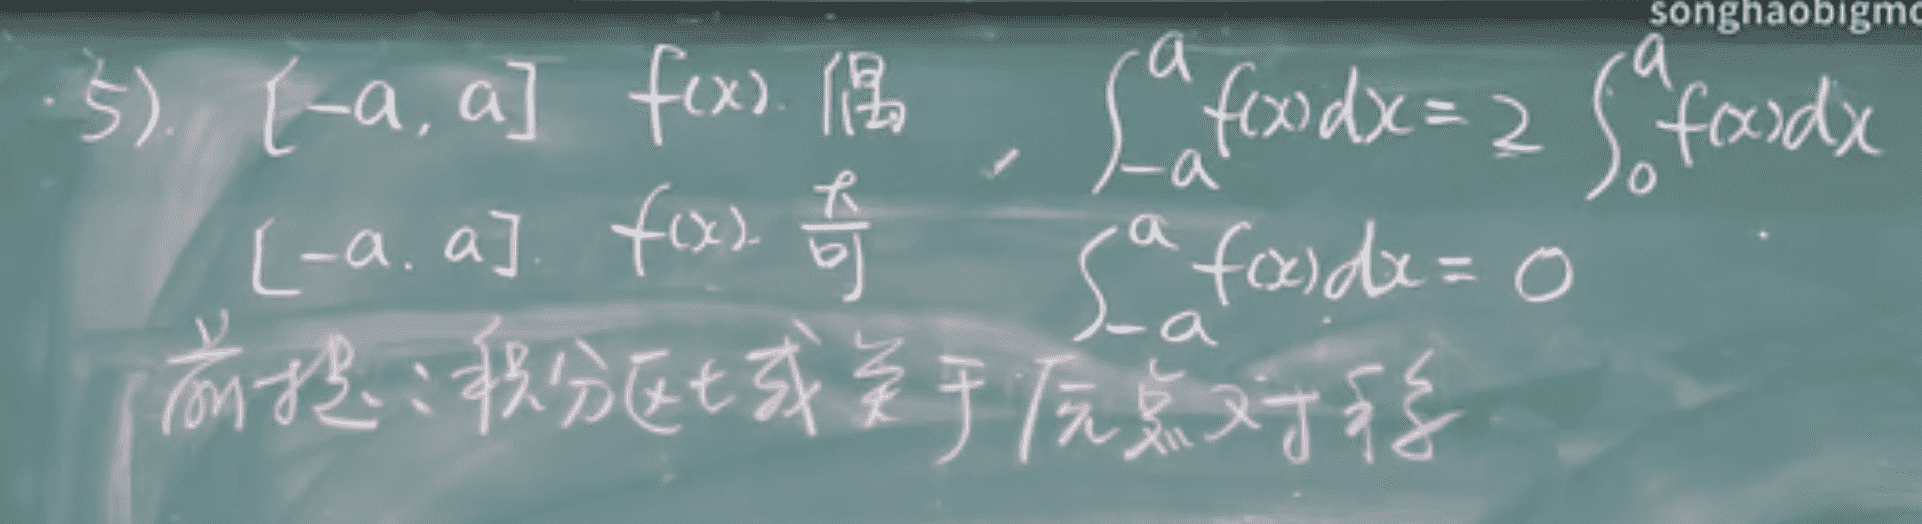 songhaobigmo
5). [-a, a] f(x). 偶, ∫_{-a}^{a} f(x)dx = 2 ∫_{0}^{a} f(x)dx
[-a. a]. f(x). 奇 ∫_{-a}^{a} f(x)dx = 0
前提：积分区域关于原点对称